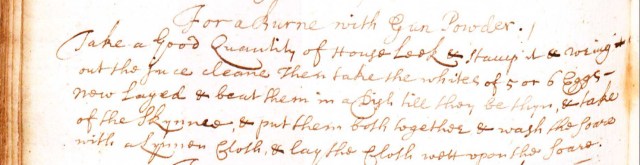 For a Burne with Gun Powder.
Take a Good Quantity of House Leek & stamp it & wring it
out the Juce cleane Then take the whites of 5 or 6 Eggs
new Layed & beat them in a Dish till they be thyn, & take
of the Skynnee, & put them both together & wash the soare
with a Lynnen Cloth, & lay the Cloth wett upon the soare.